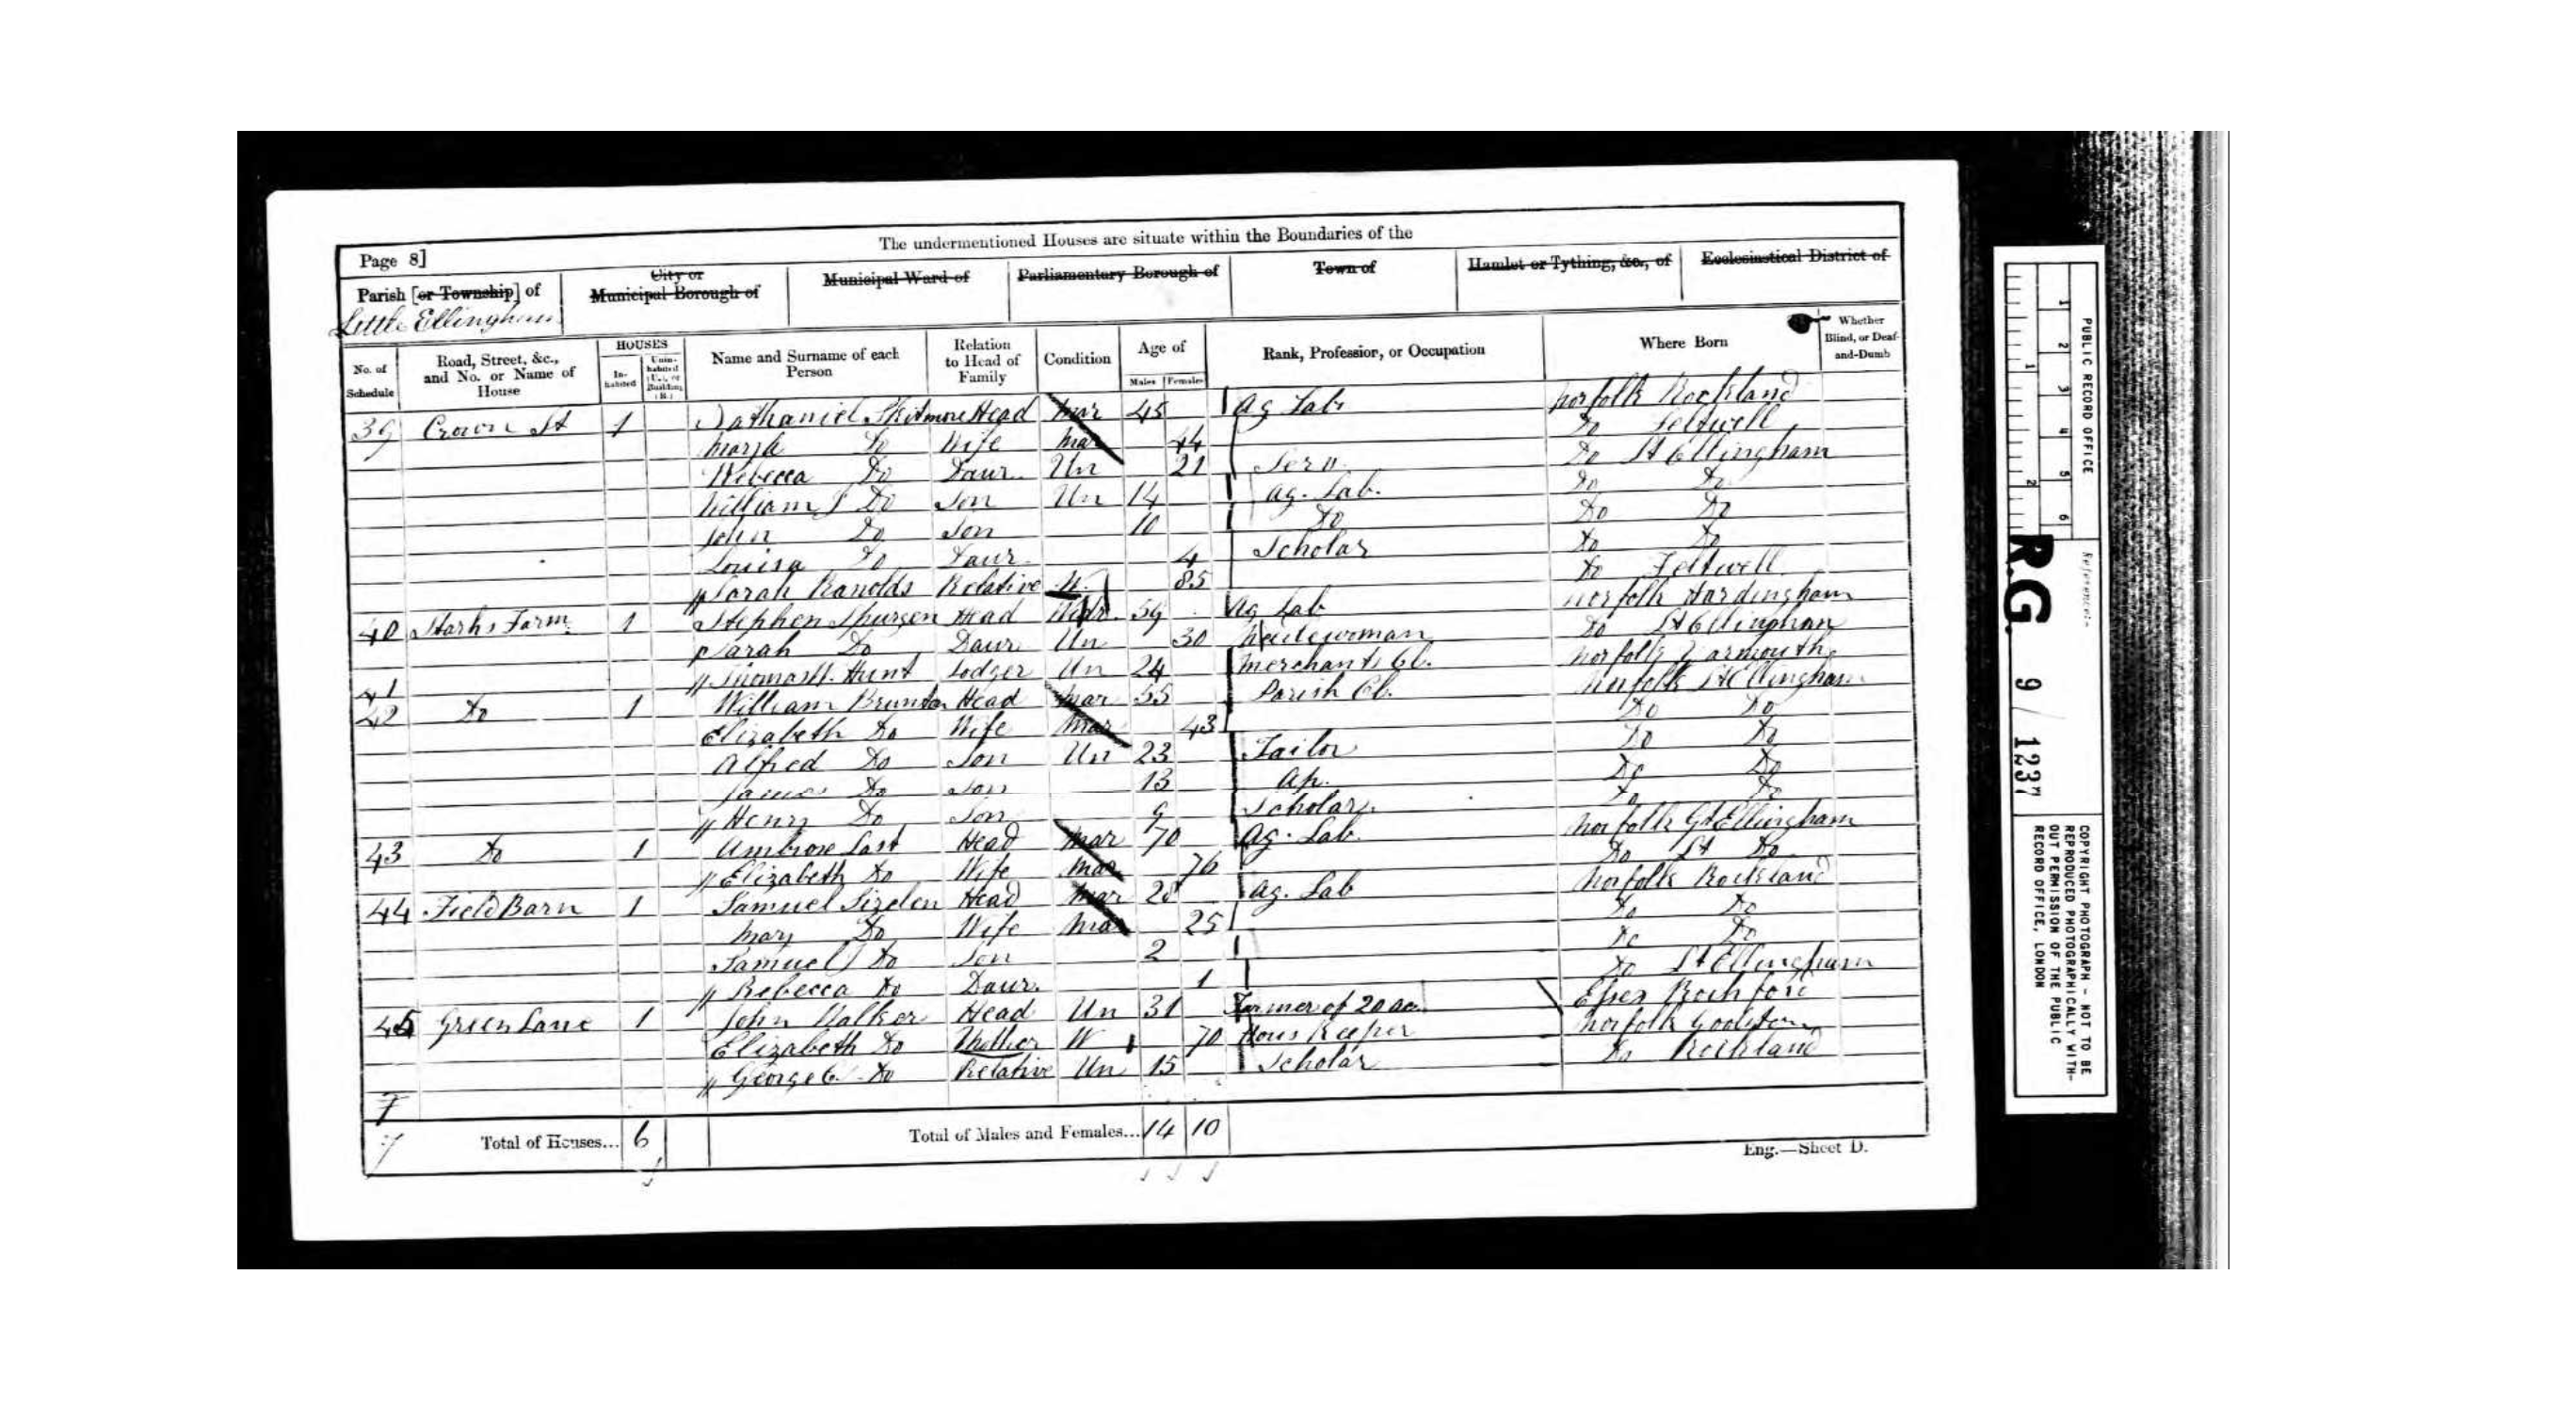 The undermentioned Houses are situate within the Boundaries of the
Page 8]
Parish [or Township] of
Little Ellingham
City or
Municipal Borough of
Municipal Ward of
Parliamentary Borough of
Town of
Hamlet or Tything, &c., of
Ecclesiastical District of
No. of Schedule
Road, Street, &c., and No. or Name of House
HOUSES
In-habited
Unin-habited (U.), or Building (B.)
Name and Surname of each Person
Relation to Head of Family
Condition
Age of
Males Females
Rank, Profession, or Occupation
Where Born
Whether Blind, or Deaf-and-Dumb
39 Crown St 1 Nathaniel Skitmore Head Mar 45 Ag Lab Norfolk Rockland
Do Wife Mar 44 Do Feltwell
Rebecca Do Daur Un 21 Serv Do Lt Ellingham
William J Do Son Un 14 Ag. Lab. Do Do
John Do Son 10 Do Do Do
Louisa Do Daur 4 Scholar Do Do
Sarah Ranolds Relative W 85 Do Feltwell
40 Starks Farm 1 Stephen Spurgen Head Widr 59 Ag Lab Norfolk Hardingham
Sarah Do Daur Un 30 Do Lt Ellingham
41 Thomas Hunt Lodger Un 24 Merchants Cl. Norfolk Yarmouth
42 Do 1 William Brunton Head Mar 55 Parish Cl. Norfolk Lt Ellingham
Elizabeth Do Wife Mar 43 Do Do
Alfred Do Son Un 23 Tailor Do Do
James Do Son 13 Ap. Do Do
Henry Do Son 9 Scholar Do Do
43 Do 1 Ambrose Last Head Mar 70 Ag. Lab. Norfolk Gt Ellingham
Elizabeth Do Wife Mar 76 Do Lt Do
44 Field Barn 1 Samuel Head Mar 28 Ag. Lab Norfolk Rockland
Mary Do Wife Mar 25 Do Do
Samuel Do Son 2 Do Do
Rebecca Do Daur. 1 Do Lt Ellingham
45 Green Lane 1 John Walker Head Un 31 Farmer of 20 ac. Essex Rochford
Elizabeth Do Mother W 70 Hous Keeper Norfolk
George C. Do Relative Un 15 Scholar Do Rockland
7
7 Total of Houses... 6 Total of Males and Females... 14 10
Eng.—Sheet D.
PUBLIC RECORD OFFICE
1 2 3 4 5 6
1 2
Reference:-
R.G. 9 / 1237
COPYRIGHT PHOTOGRAPH - NOT TO BE
REPRODUCED PHOTOGRAPHICALLY WITH-
OUT PERMISSION OF THE PUBLIC
RECORD OFFICE, LONDON